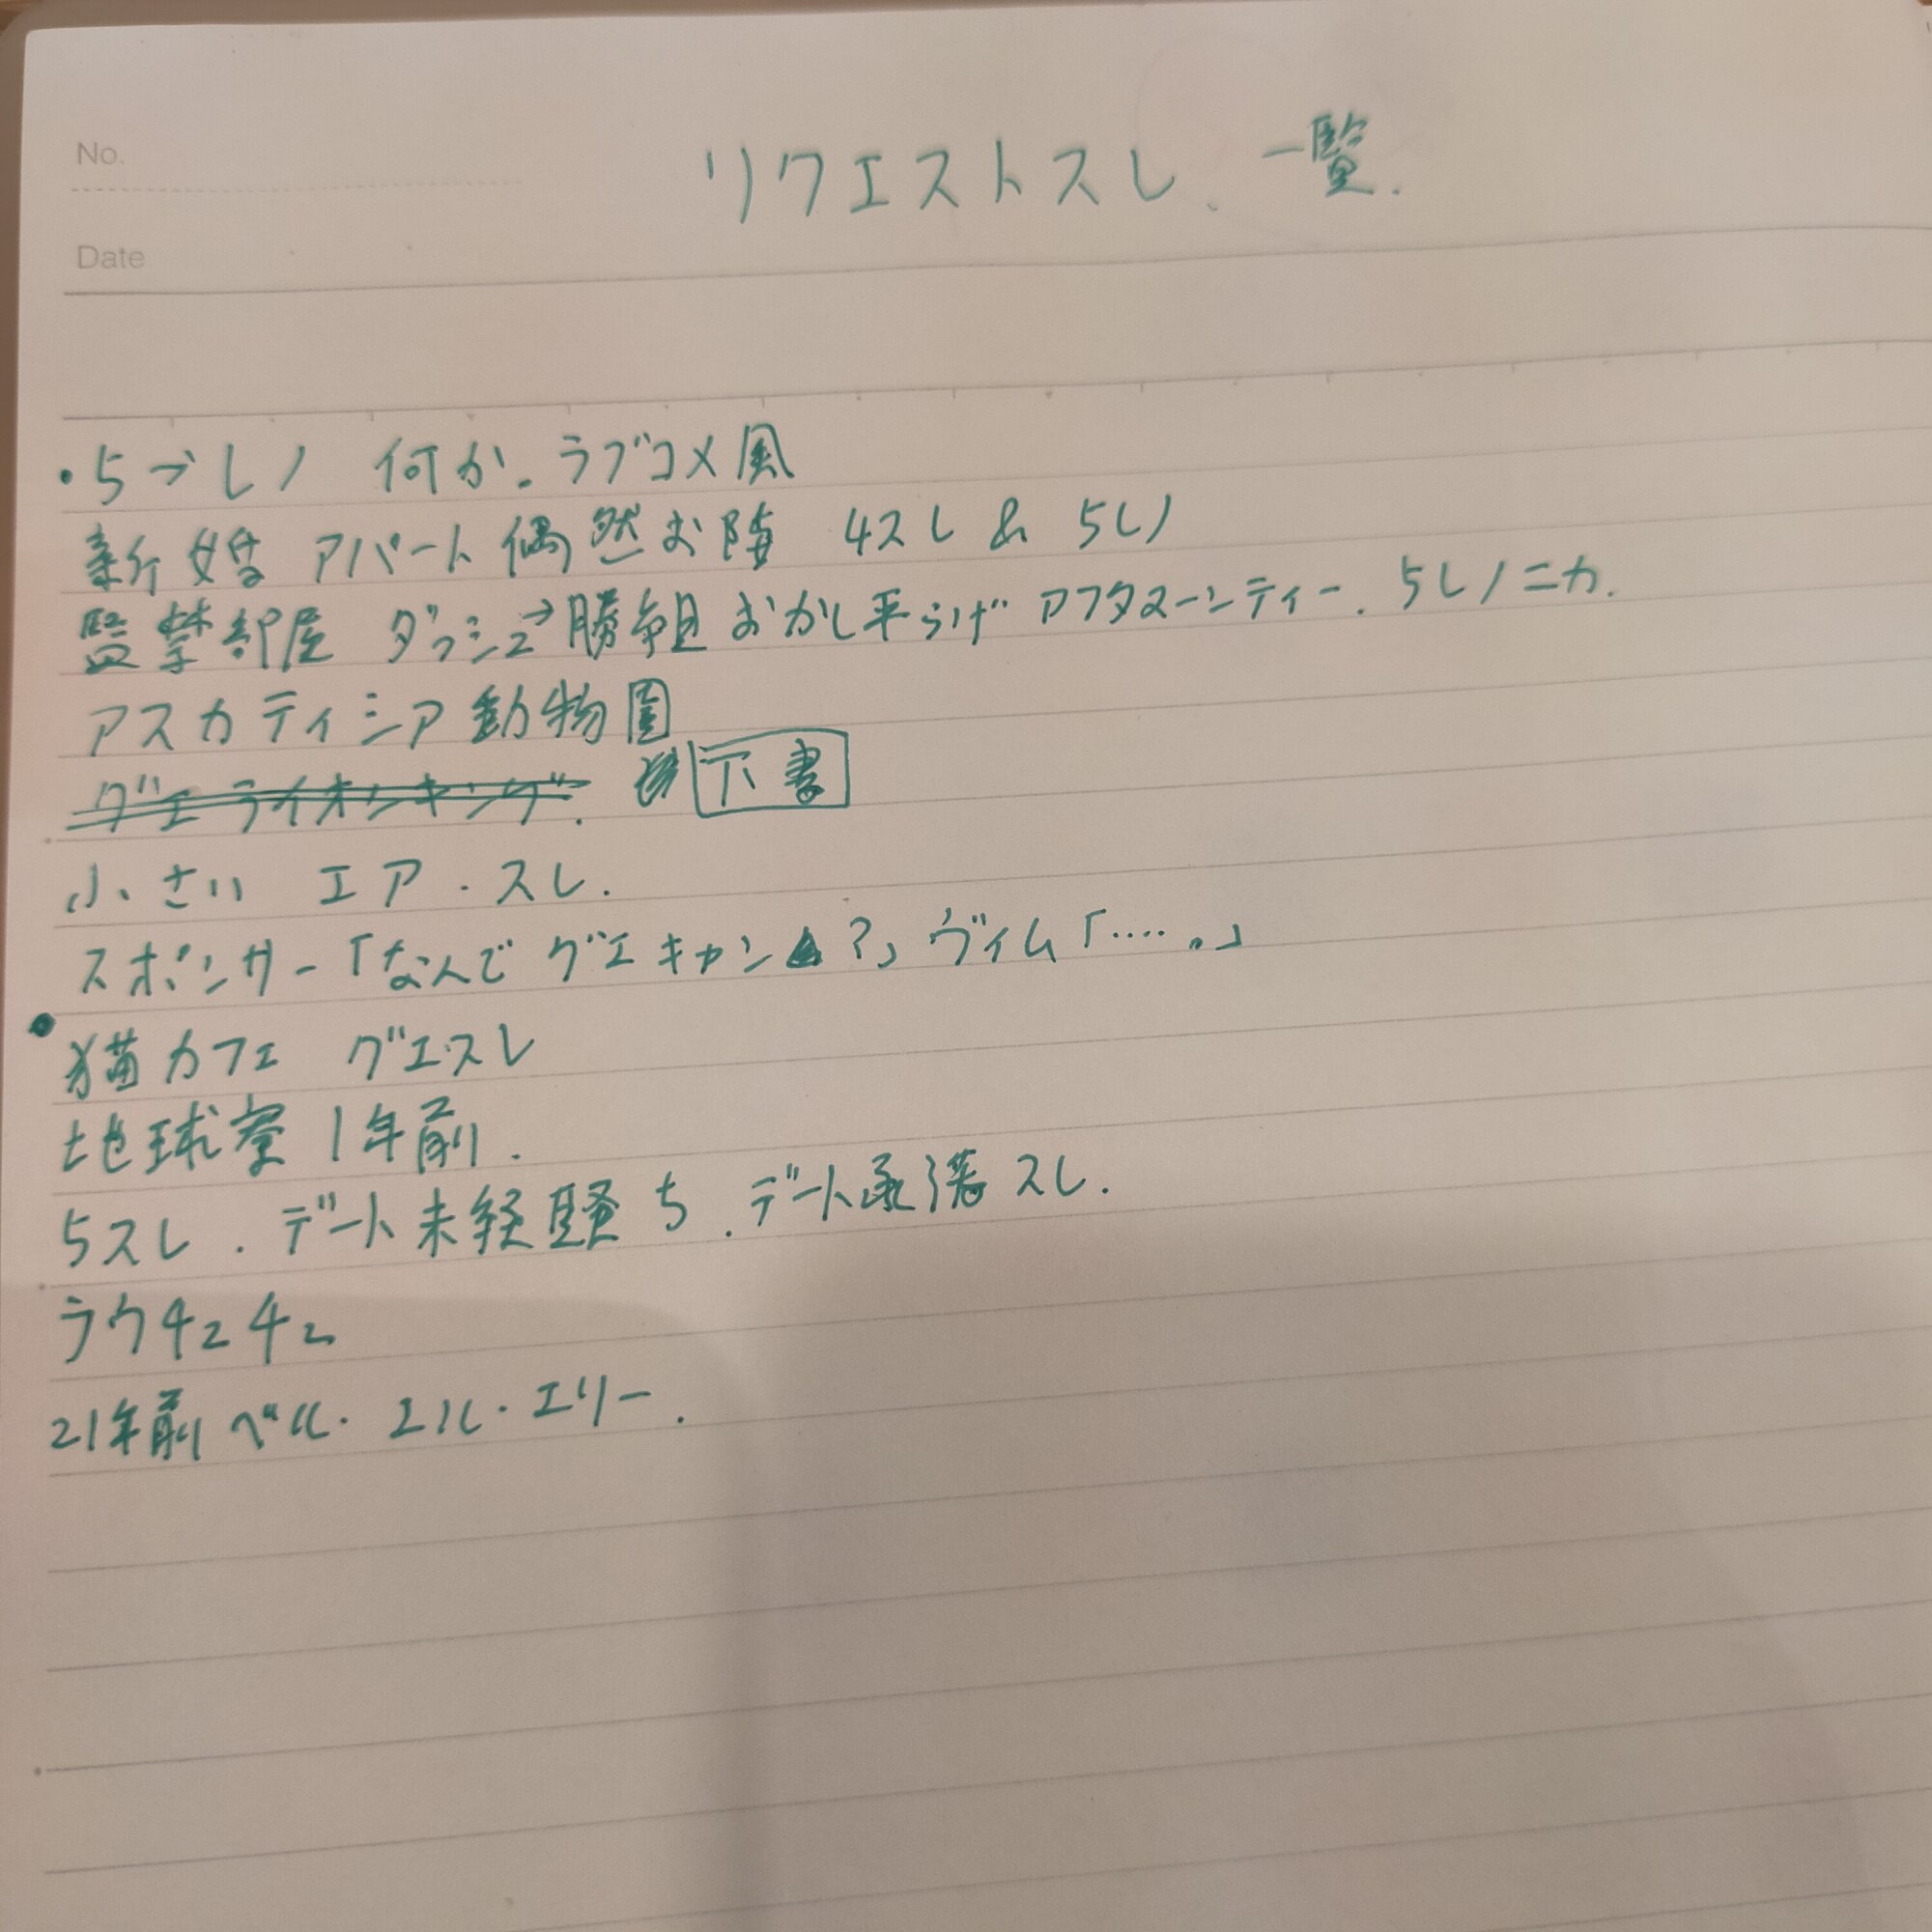 No.
リクエストスレ、一覧.
Date
・5→しノ 何か。ラブコメ風
新婚 アパート 偶然お隣 4スレ & 5しノ
監禁部屋 ダッシュ→勝組 おかし平らげ アフタヌーンティー. 5しノニカ.
アスカティシア動物園
グエ ライオンキング. 下書
小さい エア・スレ.
スポンサー「なんで グエキャン ?」ヴィム「‥‥。」
猫カフェ グエスレ
地球寮 1年前.
5スレ. デート未経験 5. デート承諾 スレ.
ラウチュチュ
21年前 ベル・エル・エリー.